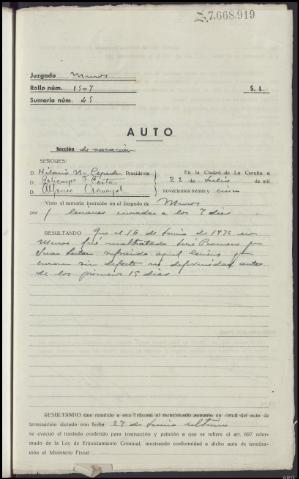 7.668.919
Juzgado Muros
Rollo núm. 1507
Sumario núm. 45
S. I.
AUTO
Sección de vacación
SEÑORES:
D. Hilario N. Cepeda Presidente
D.
D. Alfonso
En la Ciudad de La Coruña a
22 de Julio de mil
novecientos treinta y cinco
Visto el sumario instruído en el Juzgado de Muros
por lesiones curadas a los 7 días
RESULTANDO Que el 16 de Junio de 1935 en
Muros fué maltratado José
Juan sufriendo aquel lesiones q.
curaron sin defecto ni deformidad antes
de los primeros 15 días
RESULTANDO que remitido a este Tribunal el mencionado sumario en virtud del auto de
terminación dictado con fecha 27 de Junio último
se evacuó el traslado conferido para instrucción y petición a que se refiere el art. 627 refor-
mado de la Ley de Enjuiciamiento Criminal, mostrando conformidad a dicho auto de termina-
ción el Ministerio Fiscal